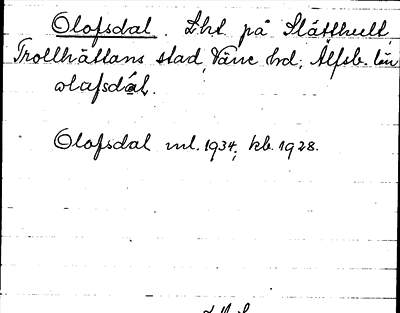 Olofsdal. Lht på Slättbult,
Trollhättans stad, Väne hd, Älfsb. län
olafsdál.
Olofsdal ml. 1934; kb. 1928.